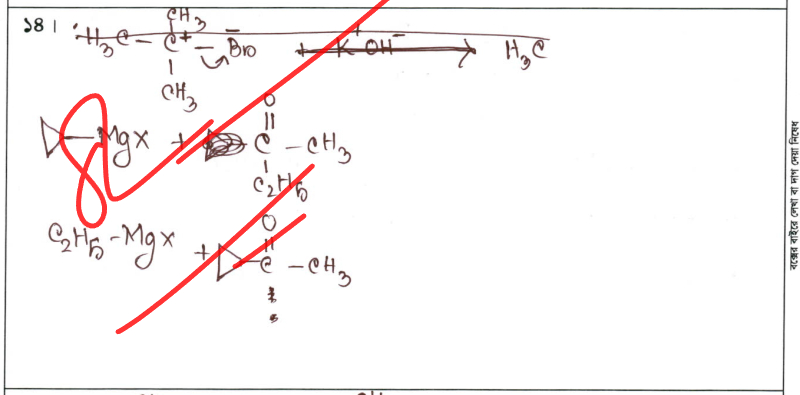 ১৪।
CH₃
H₃C – C⁺ – Br⁻ + K⁺OH⁻ → H₃C
CH₃
▷–MgX + C – CH₃
O
C₂H₅
C₂H₅–MgX + ▷–C – CH₃
O
বক্সের বাইরে লেখা বা দাগ দেয়া নিষেধ